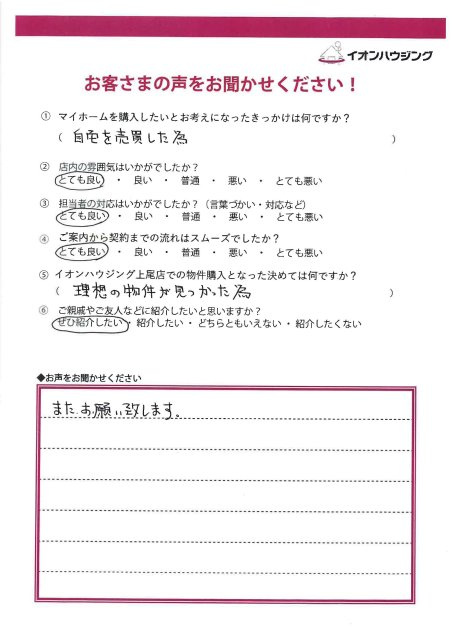 イオンハウジング
お客さまの声をお聞かせください！
① マイホームを購入したいとお考えになったきっかけは何ですか？
（ 自宅を売買した為 ）
② 店内の雰囲気はいかがでしたか？
とても良い ・ 良い ・ 普通 ・ 悪い ・ とても悪い
③ 担当者の対応はいかがでしたか？（言葉づかい・対応など）
とても良い ・ 良い ・ 普通 ・ 悪い ・ とても悪い
④ ご案内から契約までの流れはスムーズでしたか？
とても良い ・ 良い ・ 普通 ・ 悪い ・ とても悪い
⑤ イオンハウジング上尾店での物件購入となった決めては何ですか？
（ 理想の物件が見つかった為 ）
⑥ ご親戚やご友人などに紹介したいと思いますか？
ぜひ紹介したい ・ 紹介したい ・ どちらともいえない ・ 紹介したくない
◆お声をお聞かせください
また、お願い致します。